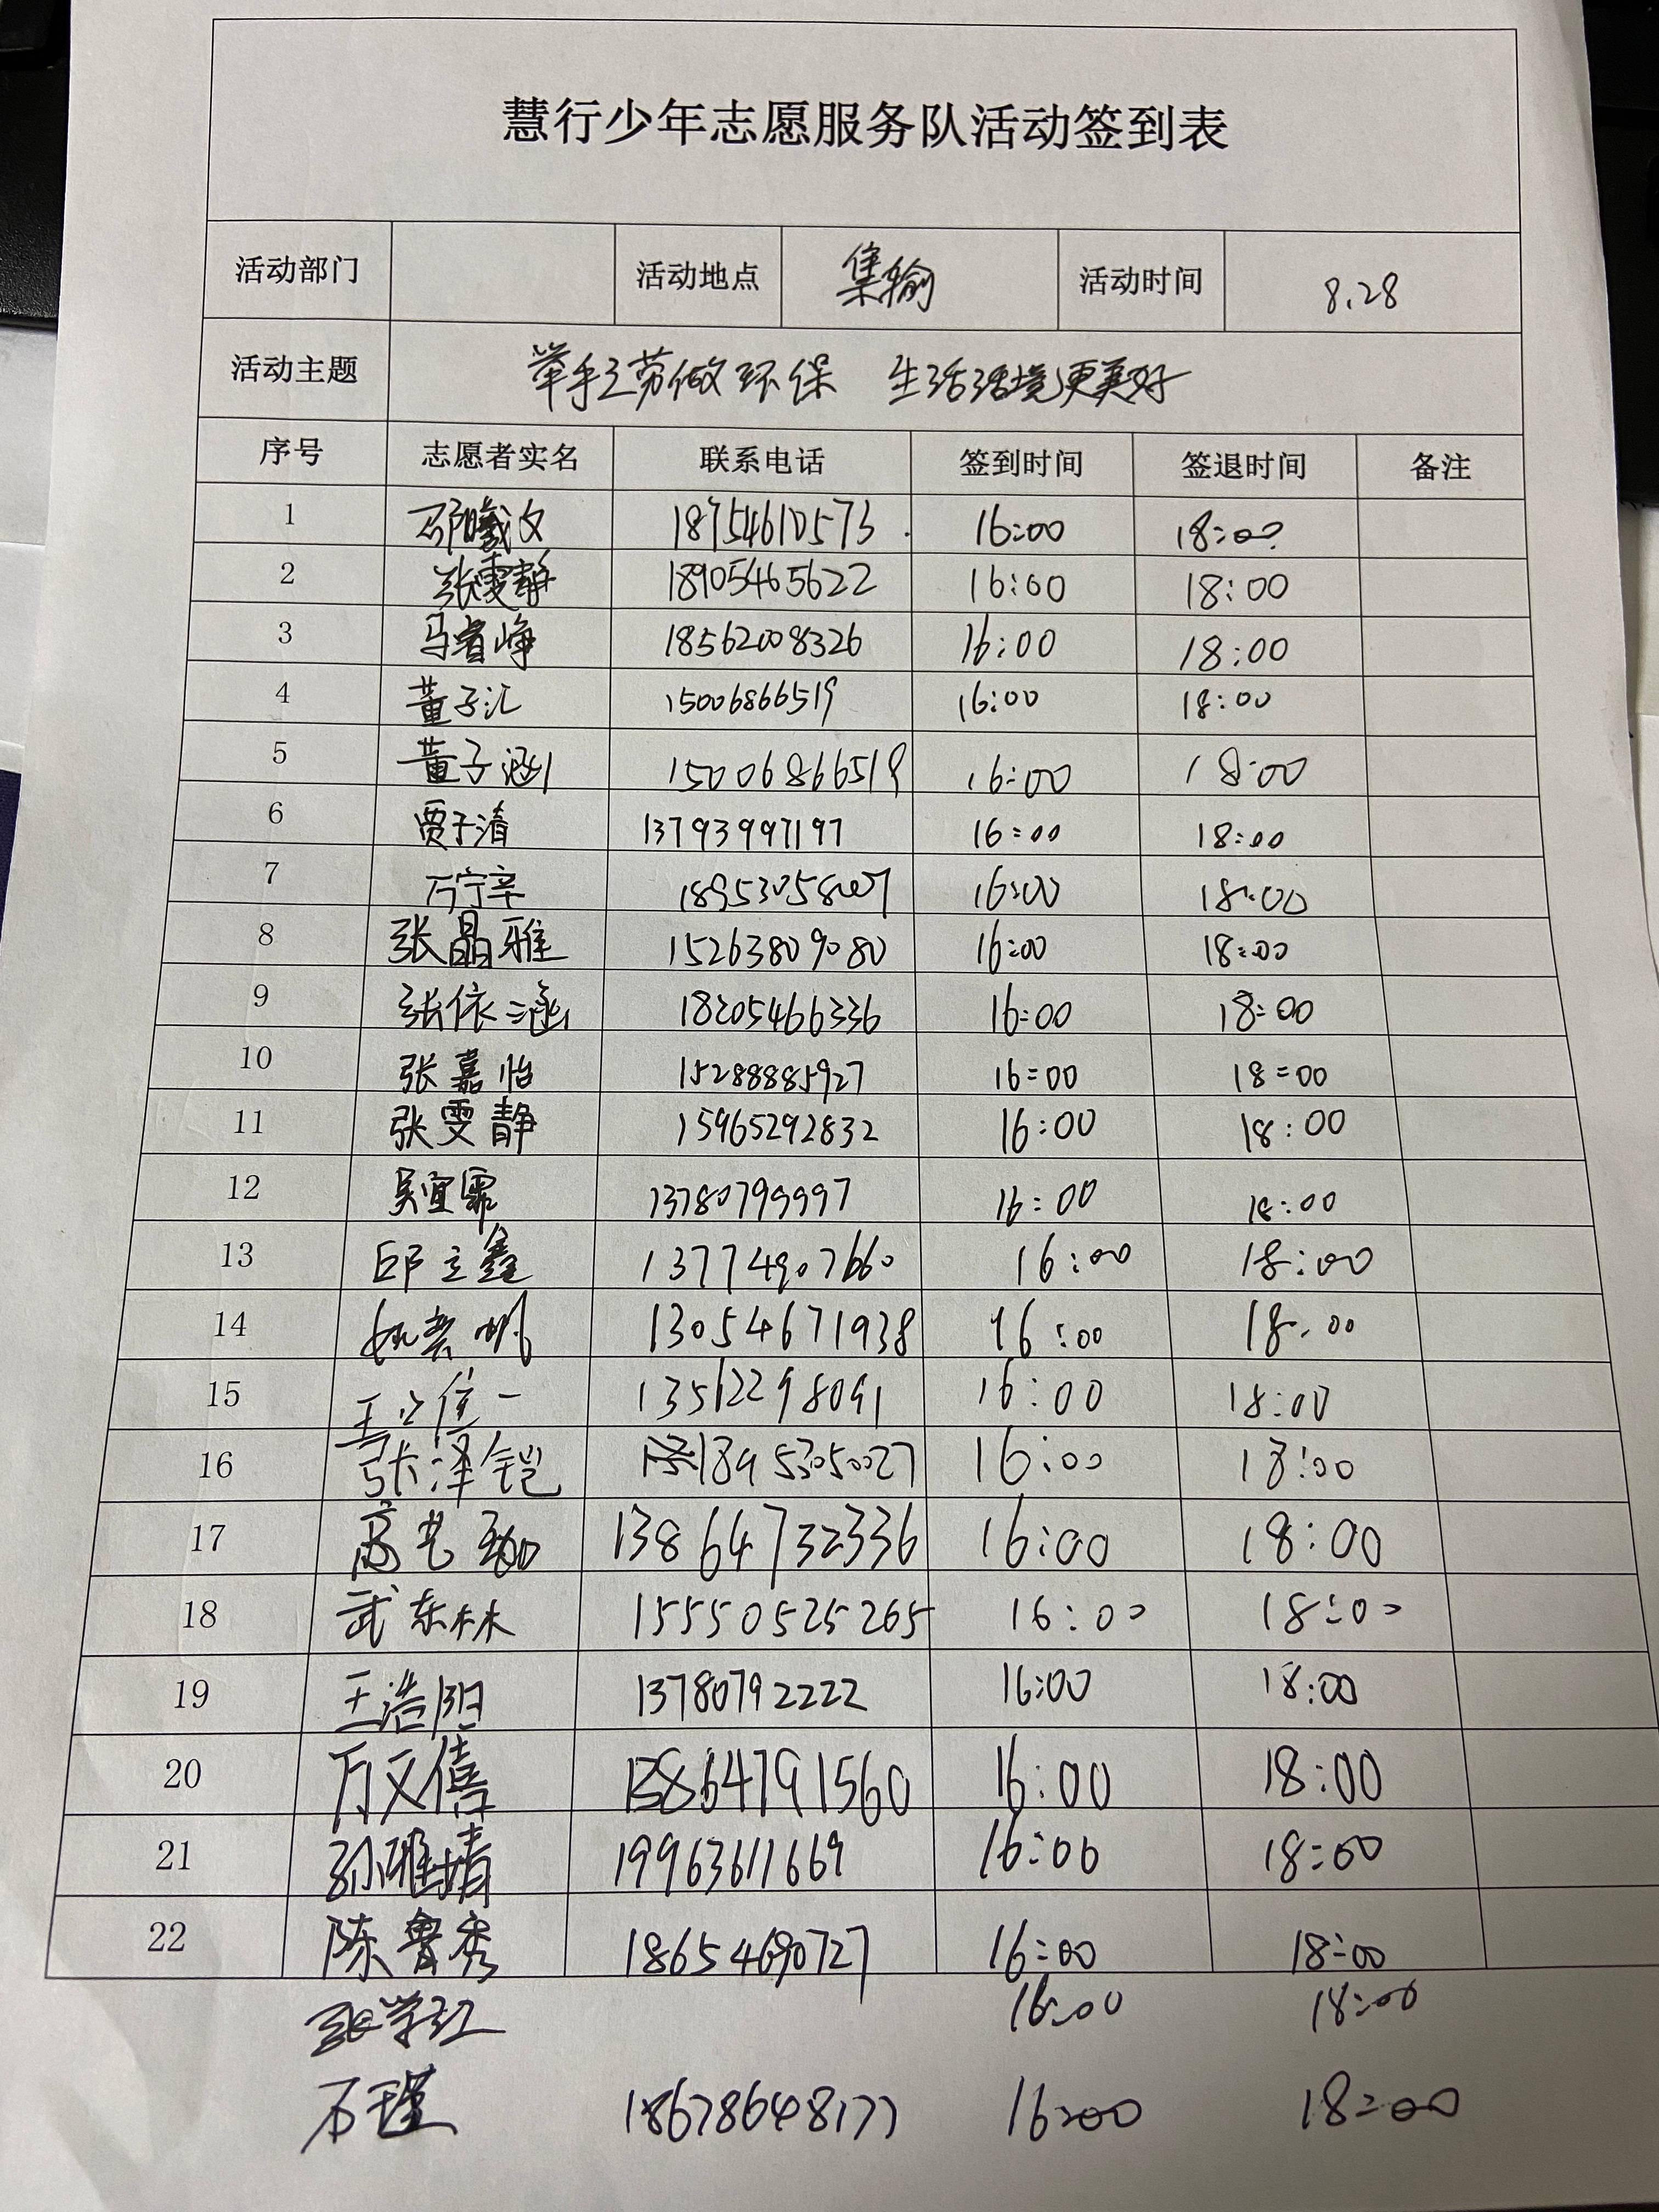 慧行少年志愿服务队活动签到表
活动部门 活动地点 集输 活动时间 8.28
活动主题 举手之劳做环保 生活活境更美好
序号 志愿者实名 联系电话 签到时间 签退时间 备注
1 邵曦汶 18754610573 16:00 18:00
2 张雯静 18905465622 16:00 18:00
3 马睿峥 18562008326 16:00 18:00
4 董子汇 15006866519 16:00 18:00
5 董子涵 15006866519 16:00 18:00
6 贾于清 13793997197 16:00 18:00
7 万宁辛 18953058007 16:00 18:00
8 张晶雅 15263809080 16:00 18:00
9 张依涵 18205466336 16:00 18:00
10 张嘉怡 15288885927 16:00 18:00
11 张雯静 15965292832 16:00 18:00
12 吴宜霏 13780799997 16:00 18:00
13 邱立鑫 13774907660 16:00 18:00
14 13054671938 16:00 18:00
15 13562298091 16:00 18:00
16 张泽铠 18953050027 16:00 18:00
17 高艺珈 13864732336 16:00 18:00
18 武东林 15550525265 16:00 18:00
19 王浩阳 13780792222 16:00 18:00
20 万又僖 13864791560 16:00 18:00
21 孙雅婧 19963611669 16:00 18:00
22 陈鲁秀 18654690727 16:00 18:00
张学红 16:00 18:00
石瑾 18678648177 16:00 18:00